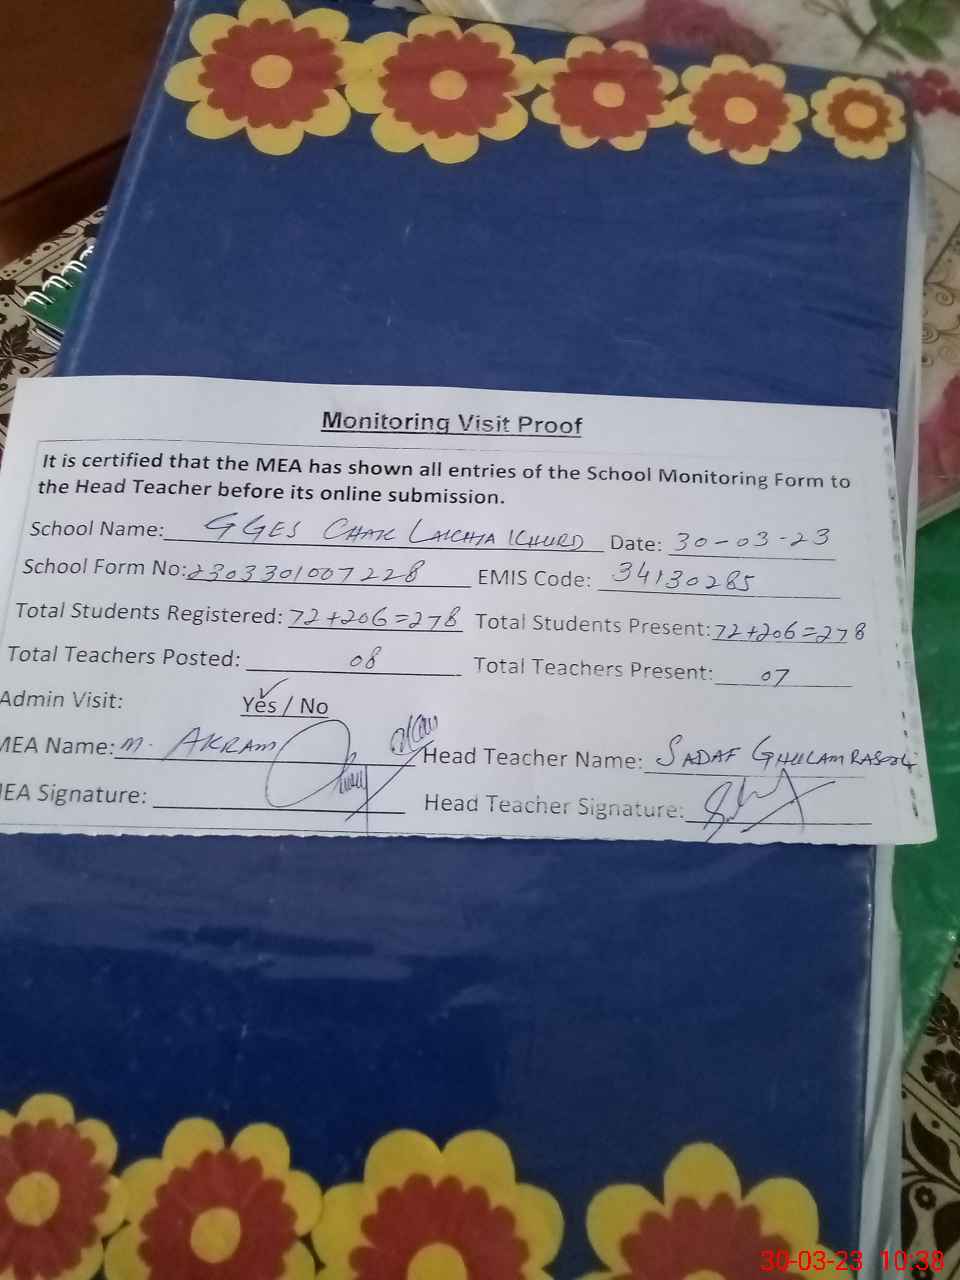 Monitoring Visit Proof
It is certified that the MEA has shown all entries of the School Monitoring Form to
the Head Teacher before its online submission.
School Name: GGES CHAK LAKHIA KHURD Date: 30-03-23
School Form No: 2303301007228 EMIS Code: 34130285
Total Students Registered: 72+206=278 Total Students Present: 72+206=278
Total Teachers Posted: 08 Total Teachers Present: 07
Admin Visit: Yes / No
MEA Name: M. AKRAM Head Teacher Name: SADAF GHULAM RASOOL
MEA Signature: Head Teacher Signature:
30-03-23 10:38